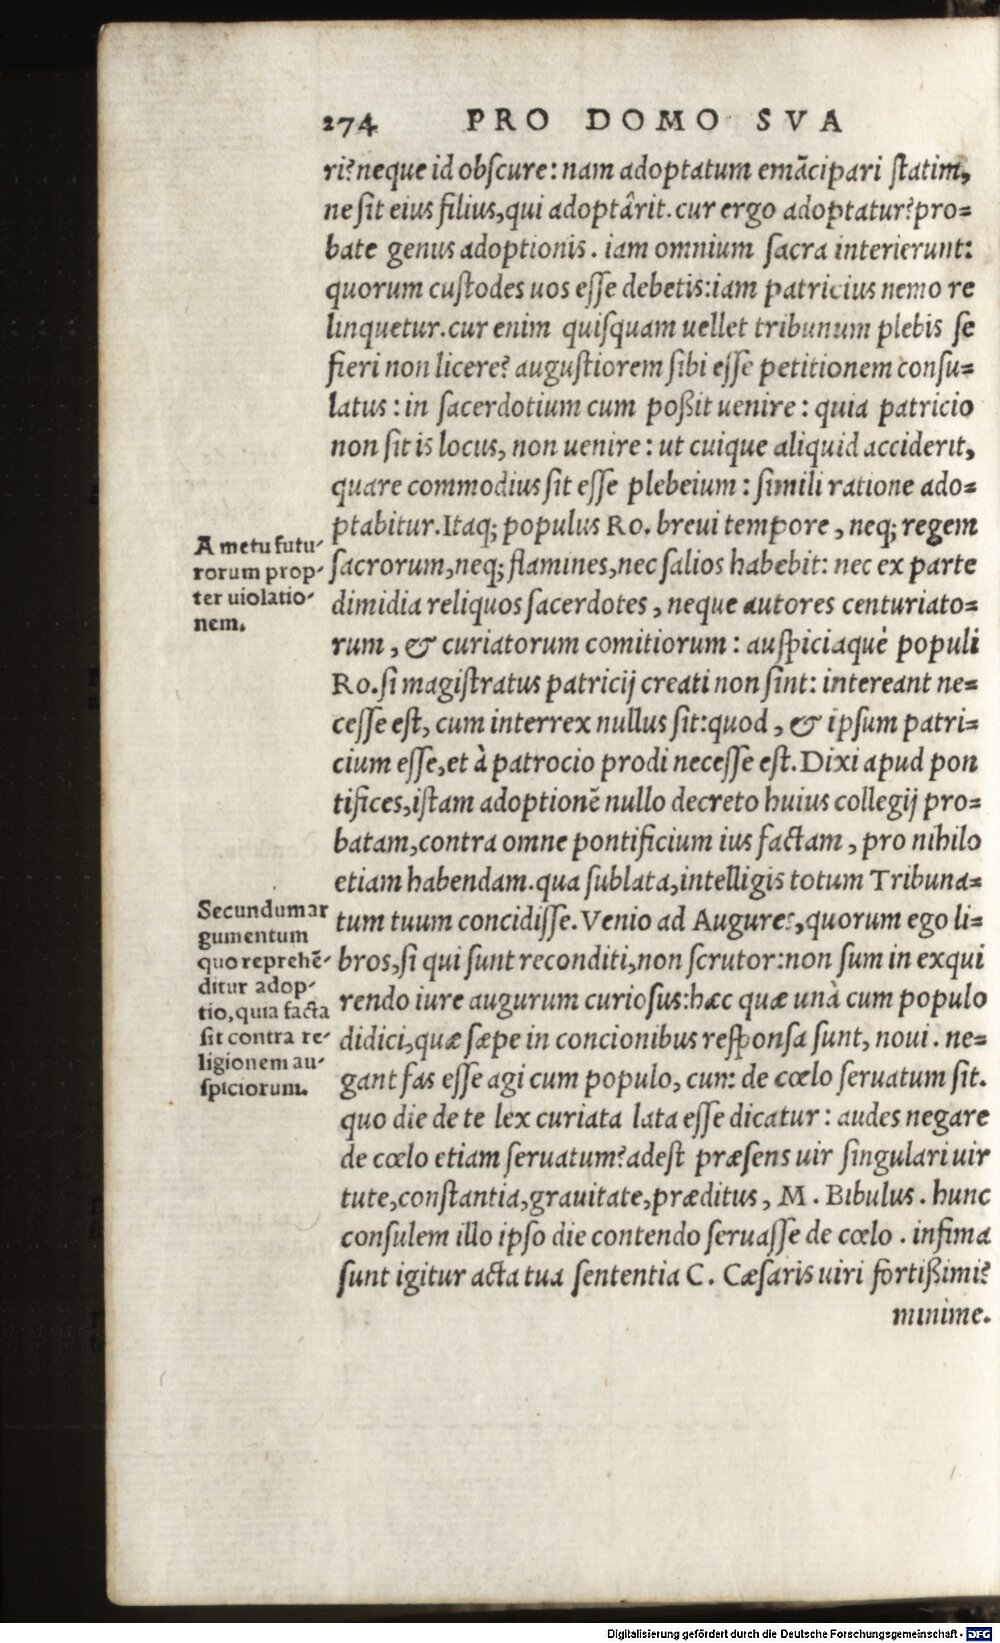 274 PRO DOMO SVA
ri? neque id obscure: nam adoptatum emācipari statim,
ne sit eius filius, qui adoptârit. cur ergo adoptatur? pro=
bate genus adoptionis. iam omnium sacra interierunt:
quorum custodes uos esse debetis: iam patricius nemo re
linquetur. cur enim quisquam uellet tribunum plebis se
fieri non licere? augustiorem sibi esse petitionem consu=
latus: in sacerdotium cum poßit uenire: quia patricio
non sit is locus, non uenire: ut cuique aliquid acciderit,
quare commodius sit esse plebeium: simili ratione ado=
ptabitur. Itaq; populus Ro. breui tempore, neq; regem
sacrorum, neq; flamines, nec salios habebit: nec ex parte
dimidia reliquos sacerdotes, neque autores centuriato=
rum, & curiatorum comitiorum: auspiciaquè populi
Ro. si magistratus patricij creati non sint: intereant ne=
cesse est, cum interrex nullus sit: quod, & ipsum patri=
cium esse, et à patrocio prodi necesse est. Dixi apud pon
tifices, istam adoptionē nullo decreto huius collegij pro=
batam, contra omne pontificium ius factam, pro nihilo
etiam habendam. qua sublata, intelligis totum Tribuna=
tum tuum concidisse. Venio ad Augures, quorum ego li=
bros, si qui sunt reconditi, non scrutor: non sum in exqui
rendo iure augurum curiosus: hæc quæ unà cum populo
didici, quæ sæpe in concionibus responsa sunt, noui. ne=
gant fas esse agi cum populo, cum de cœlo seruatum sit.
quo die de te lex curiata lata esse dicatur: audes negare
de cœlo etiam seruatum? adest præsens uir singulari uir
tute, constantia, grauitate, præditus, M. Bibulus. hunc
consulem illo ipso die contendo seruasse de cœlo. infima
sunt igitur acta tua sententia C. Cæsaris uiri fortißimi?
minime.
A metu futu-
rorum prop-
ter uiolatio-
nem.
Secundum ar
gumentum
quo reprehē-
ditur adop-
tio, quia facta
sit contra re-
ligionem au-
spiciorum.
Digitalisierung gefördert durch die Deutsche Forschungsgemeinschaft - DFG